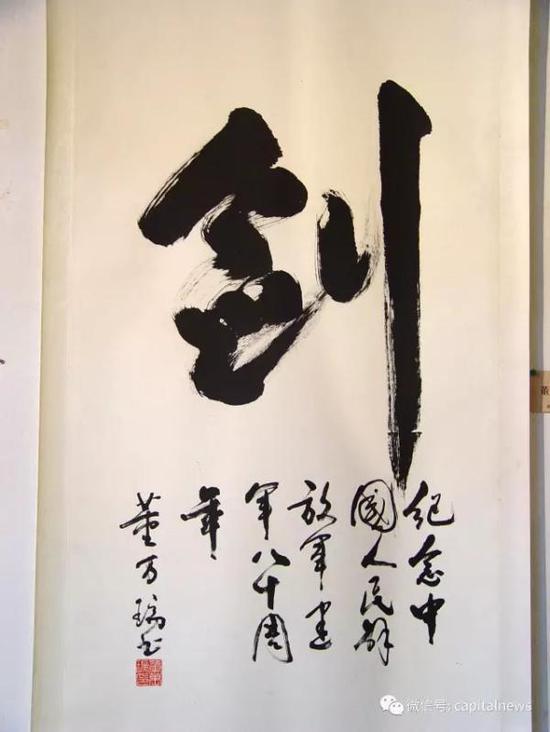 剑
纪念中
國人民解
放军建
军八十周
年
董万瑞书
微信号: capitalnews
董